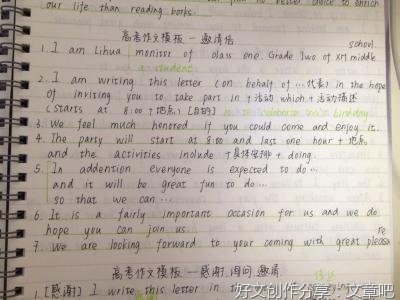 our life than reading books.
高考作文模板一邀请信
school.
1. I am Lihua monitor of class one. Grade Two of XH middle
a student
2. I am writing this letter (on behalf of …代表) in the hope
of inviting you to take part in + 活动 which + 活动描述
(starts at 8:00 + 地点) [目的] to celebrate birthday
3. We feel much honored if you could come and enjoy it.
4. The party will start at 8:00 and last one hour + 地点
and the activities include + 具体安排 + doing.
5. In addention everyone is expected to do …
and it will be great fun to do …
so that we can …
6. It is a fairly important occasion for us and we do
hope you can join us.
re
7. We are looking forward to your coming with great pleasu
高考作文模板一感谢,询问,邀请
[感谢] I write this letter in
好文创作分享，文章吧